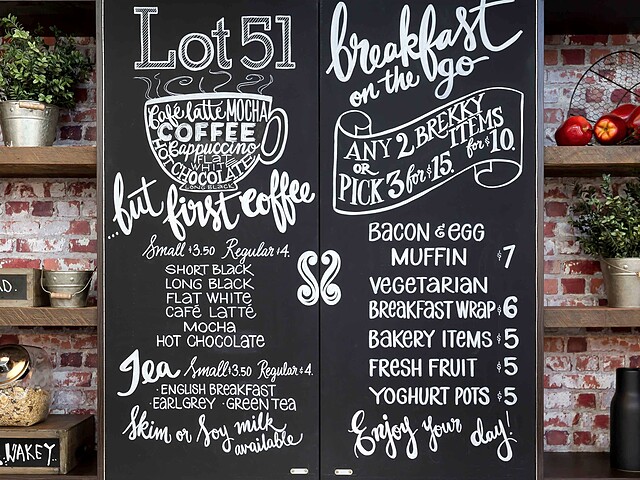 Lot 51
Café latte MOCHA
COFFEE
Cappuccino
FLAT
WHITE
HOT CHOCOLATE
LONG BLACK
...but first coffee
Small $3.50 Regular $4.
SHORT BLACK
LONG BLACK
FLAT WHITE
CAFÉ LATTE
MOCHA
HOT CHOCOLATE
Tea Small $3.50 Regular $4.
· ENGLISH BREAKFAST
· EARL GREY · GREEN TEA
Skim or Soy milk
available
breakfast
on the go
ANY 2 BREKKY
ITEMS
for $10.
OR
PICK 3 for $15.
BACON & EGG
MUFFIN $7
VEGETARIAN
BREAKFAST WRAP $6
BAKERY ITEMS $5
FRESH FRUIT $5
YOGHURT POTS $5
Enjoy your day!
WAKEY..